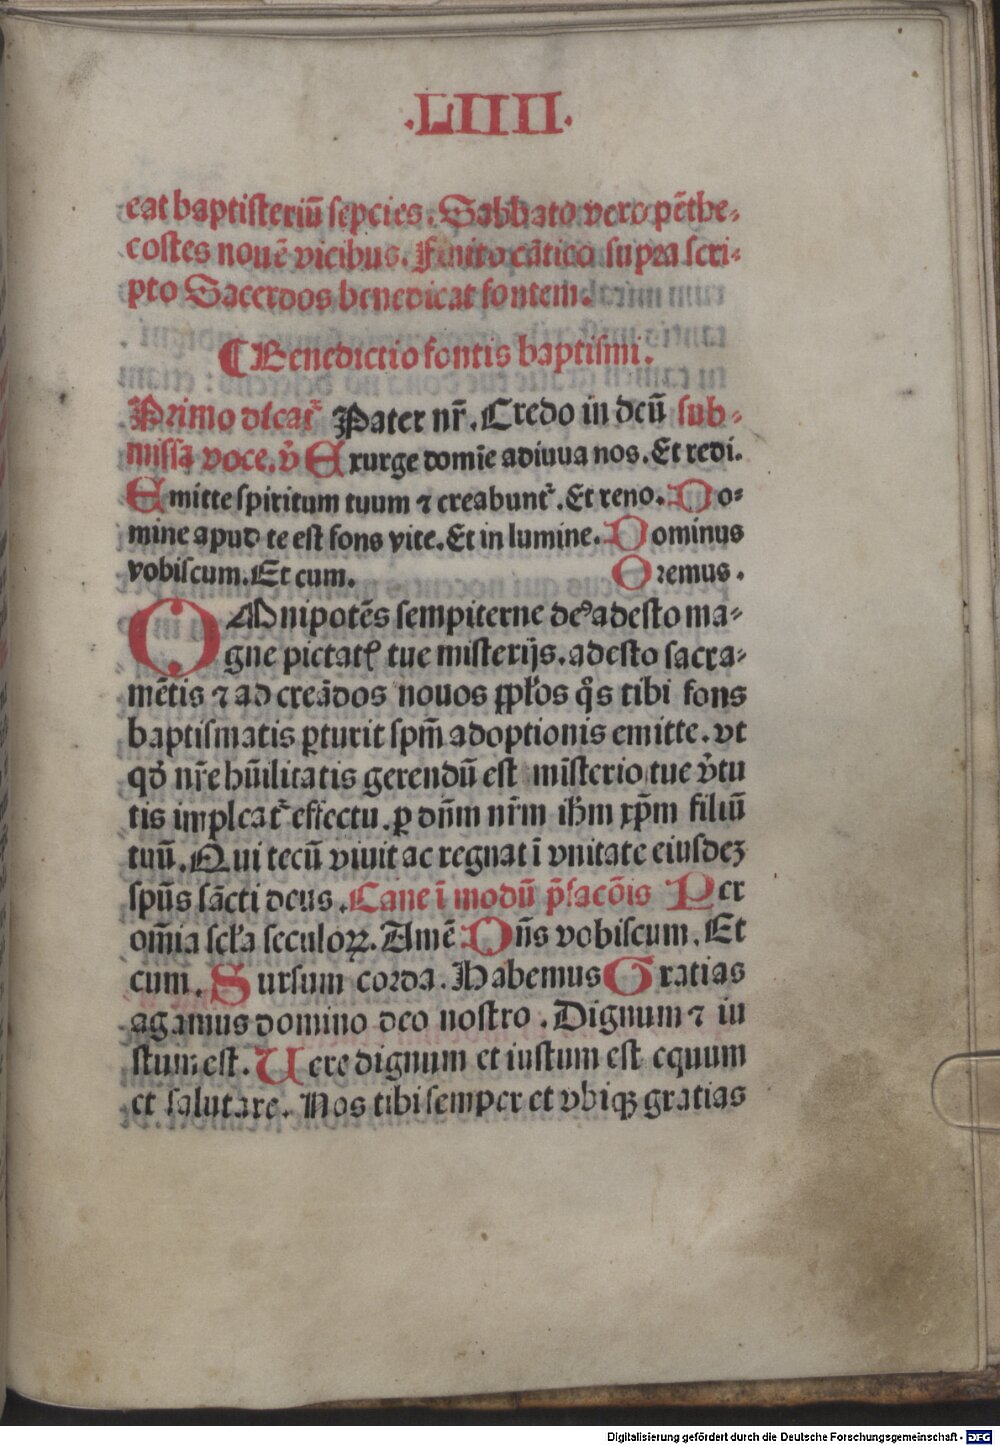 .LIIII.
eat baptisteriū sepcies. Sabbato vero pēthe-
costes nouē vicibus. Finito cātico supra scri-
pto Sacerdos benedicat fontem.
¶ Benedictio fontis baptismi.
Primo dicat᷑ Pater nr̄. Credo in deū sub-
missa voce. v̄ Exurge domīe adiuua nos. Et redi.
Emitte spiritum tuum ⁊ creabunt᷑. Et reno. Do-
mine apud te est fons vite. Et in lumine. Dominus
vobiscum. Et cum. Oremus.
OMnipotēs sempiterne deꝰ adesto ma-
gne pietatꝭ tue misterijs. adesto sacra-
mētis ⁊ ad creādos nouos pp̄los q̄s tibi fons
baptismatis ꝑturit sp̄m adoptionis emitte. vt
qd̄ nr̄e hūilitatis gerendū est misterio tue v̄tu
tis impleat᷑ effectu. ꝑ dn̄m nr̄m ih̄m xp̄m filiū
tuū. Qui tecū viuit ac regnat ī vnitate eiusdeꝫ
spūs sācti deus. Cane ī modū p̄facōis Per
om̄ia scl̄a seculoꝝ. Amē Dn̄s vobiscum. Et
cum. Sursum corda. Habemus Gratias
agamus domino deo nostro. Dignum ⁊ iu
stum est. Uere dignum et iustum est equum
et salutare. Nos tibi semper et vbiqꝫ gratias
Digitalisierung gefördert durch die Deutsche Forschungsgemeinschaft - DFG